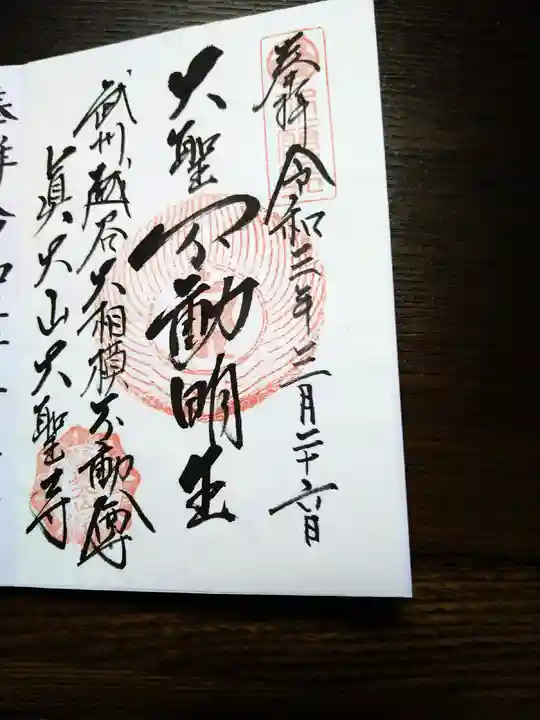 奉拝 令和三年三月二十六日
大聖不動明王
武州越谷大相模不動尊
眞大山大聖寺
奉拝 令和